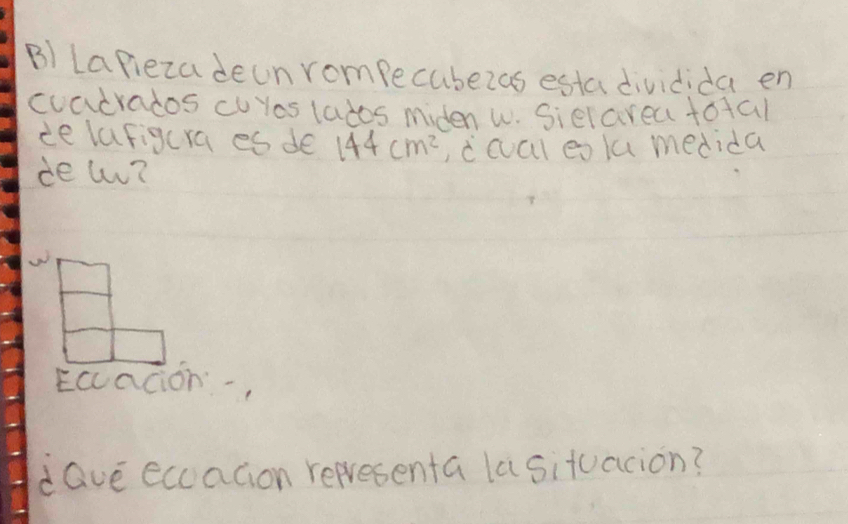 B) La Pieza de un rompecabezas esta dividida en
cuadrados cuyos lados miden w. Si el area total
de la figura es de 144 cm², ¿cual es la medida
de w?
w
Ecuación: -,
¿Qué ecuacion representa la situación?